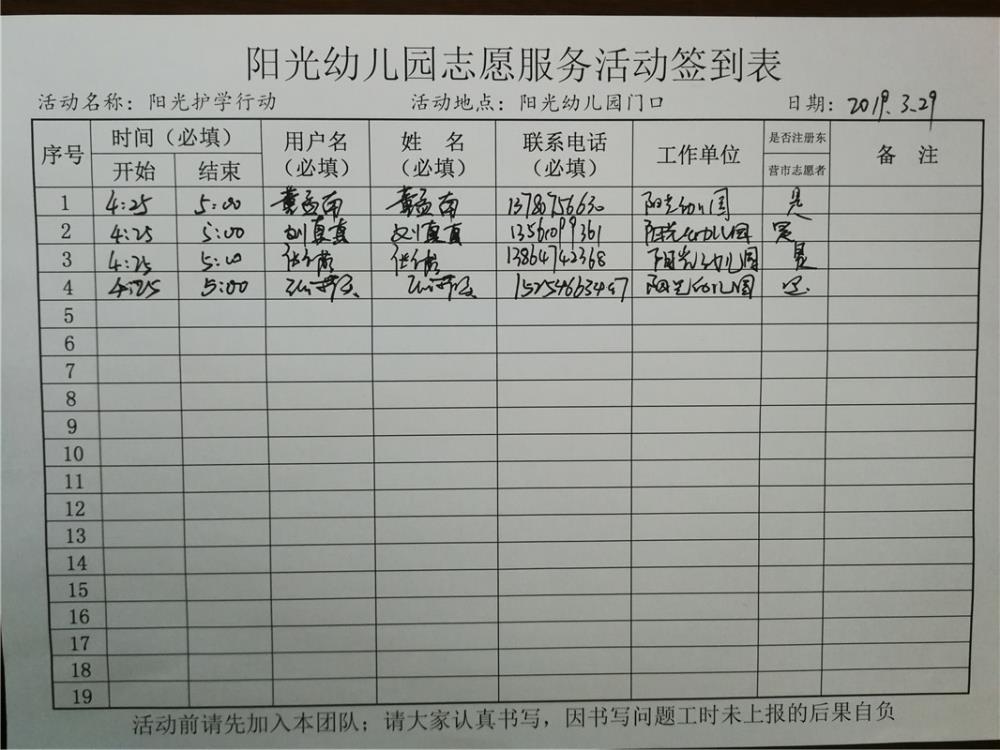 阳光幼儿园志愿服务活动签到表
活动名称：阳光护学行动 活动地点：阳光幼儿园门口 日期：2019.3.29
序号 时间（必填） 用户名（必填） 姓名（必填） 联系电话（必填） 工作单位 是否注册东营市志愿者 备注
开始 结束
1 4:25 5:00 13780756630 阳光幼儿园 是
2 4:25 5:00 刘真真 刘真真 13561099361 阳光幼儿园 是
3 4:25 5:00 13864742368 阳光幼儿园 是
4 4:25 5:00 阳光幼儿园 是
5
6
7
8
9
10
11
12
13
14
15
16
17
18
19
活动前请先加入本团队；请大家认真书写，因书写问题工时未上报的后果自负